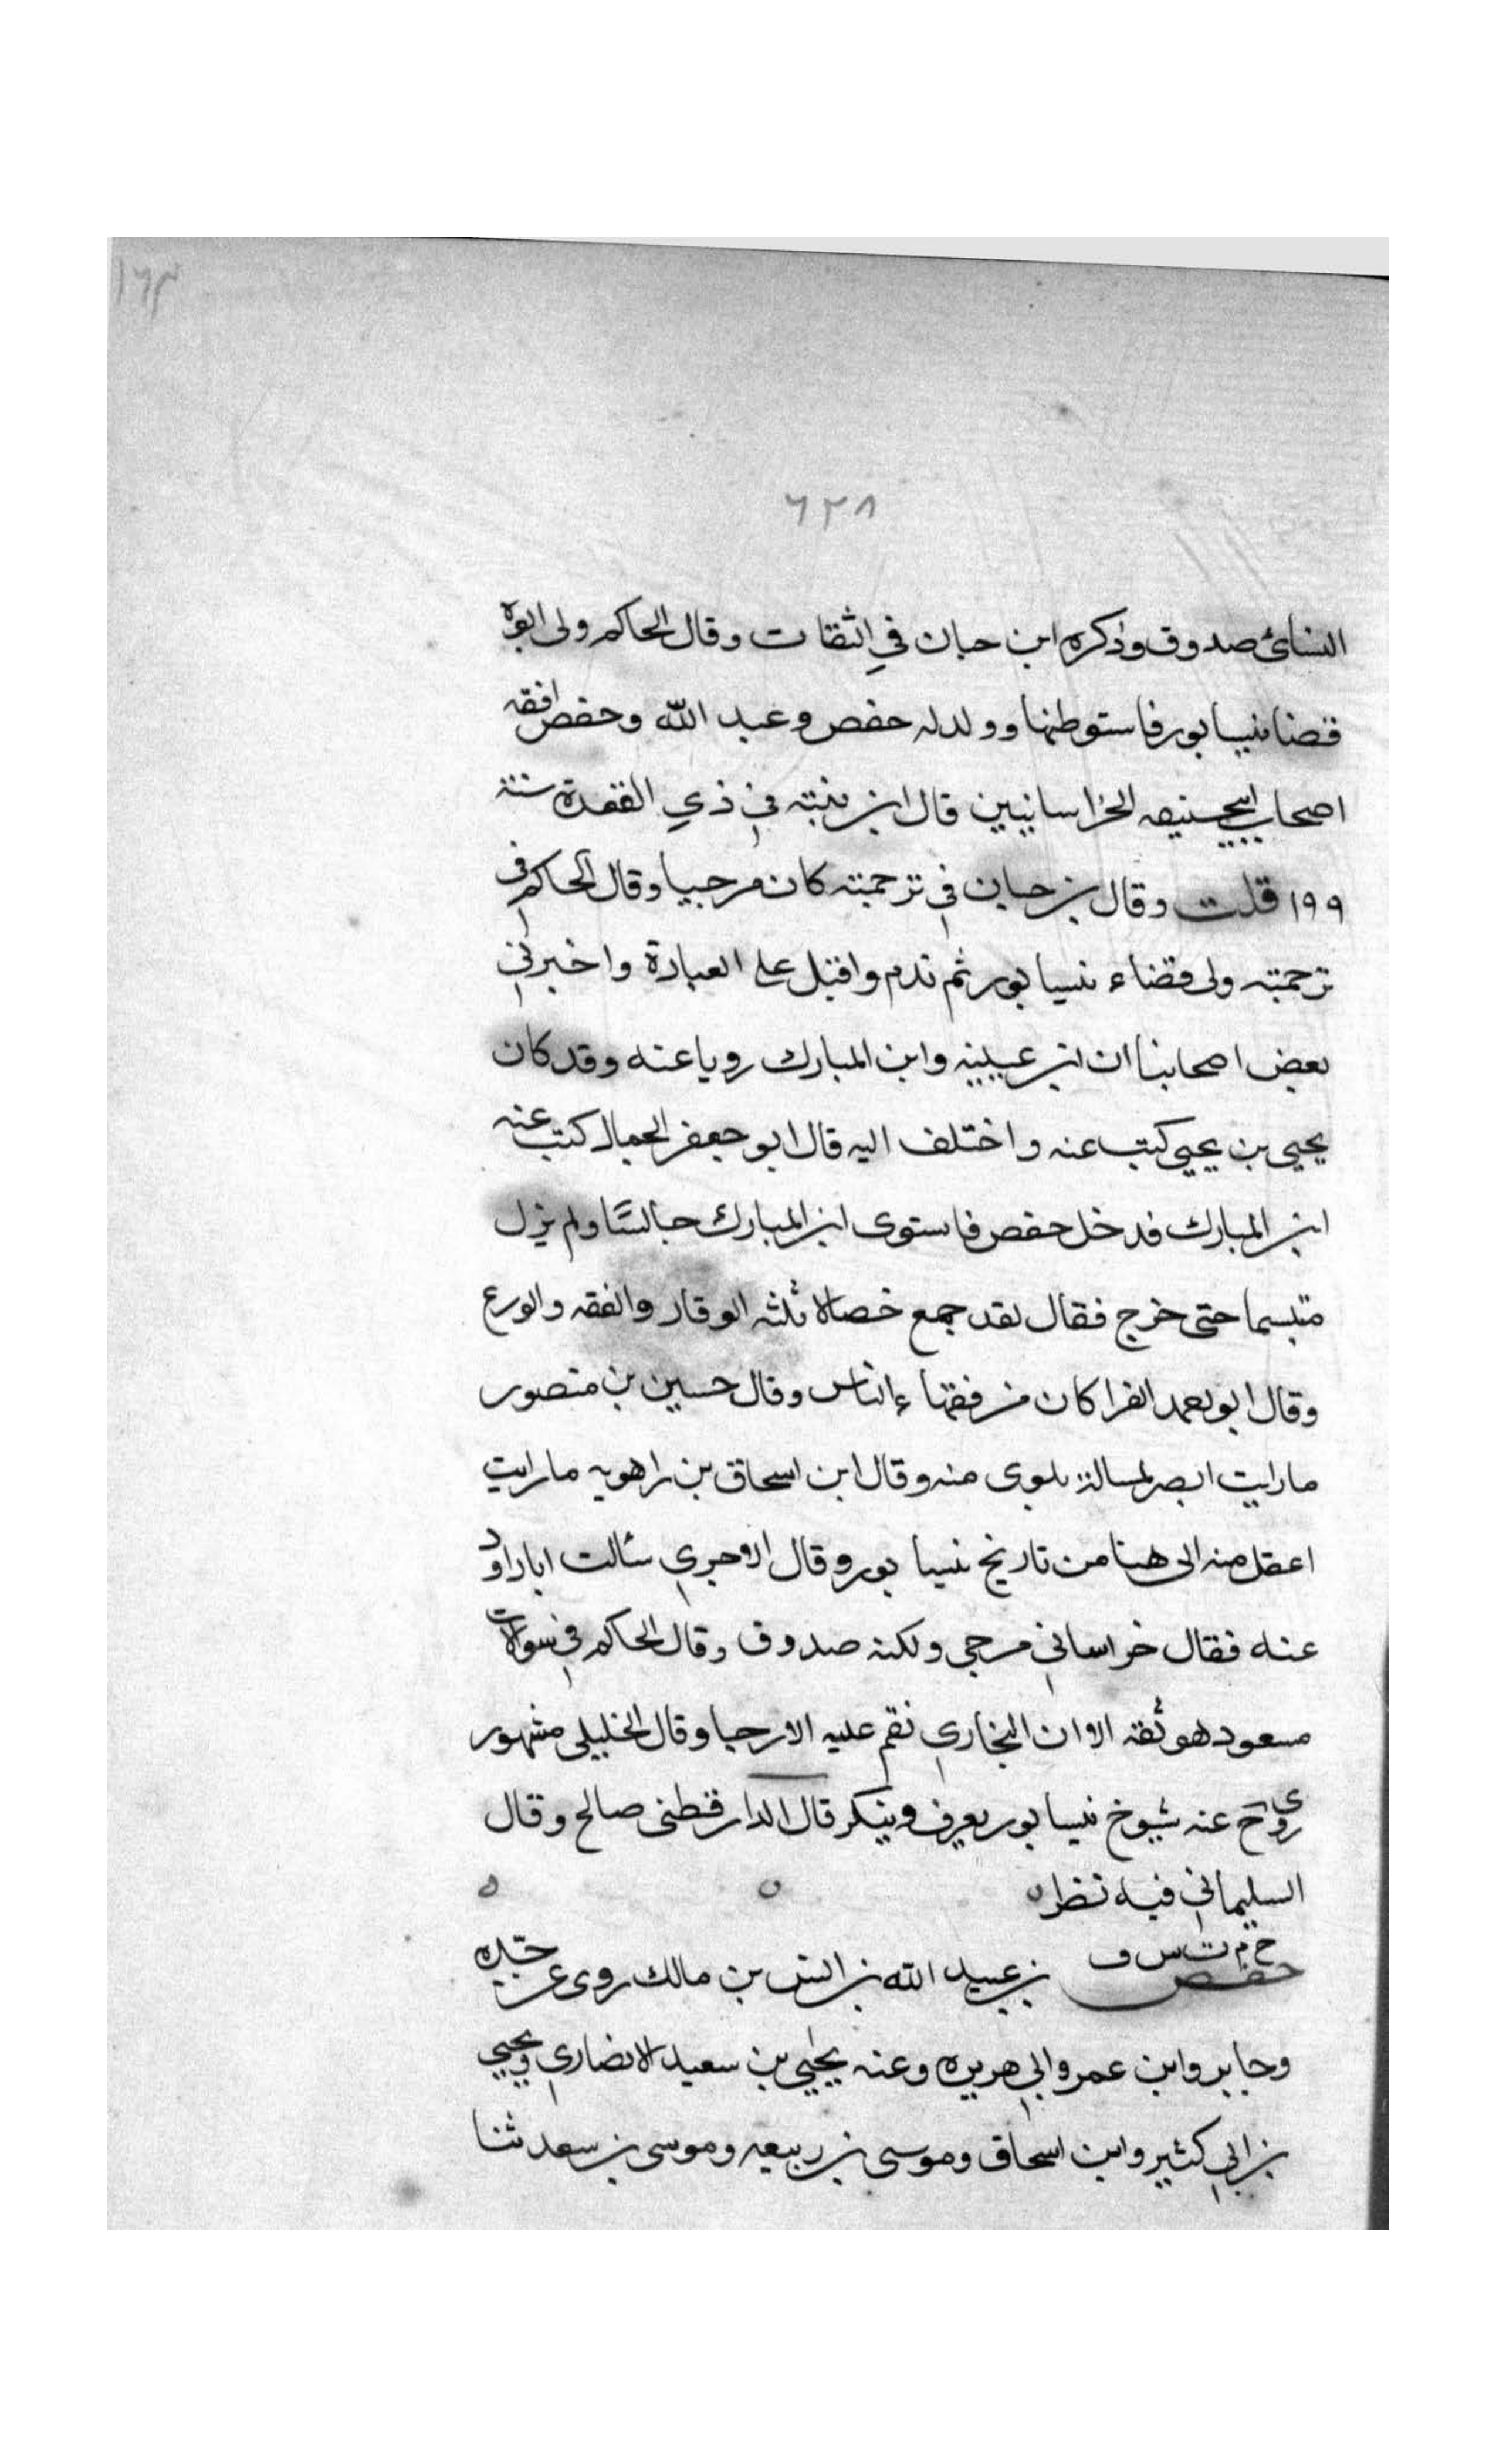 ١٦٣
٦٢٨
النسائ صدوق وذكره ابن حبان في الثقات وقال الحاكم ولى ابوه
قضا نيسابور فاستوطنها وولد له حفص وعبد الله وحفص افقه
اصحاب ابي حنيفه الخراسانيين قال ابن بنته في ذي القعدة سنة
١٩٩ قلت وقال بن حبان في ترجمته كان مرجيا وقال الحاكم في
ترجمته ولى قضاء نيسابور ثم ندم واقبل على العبادة واخبرني
بعض اصحابنا ان ابن عيينه وابن المبارك رويا عنه وقد كان
يحيى بن يحيى كتب عنه واختلف اليه قال ابو جعفر الجمال كنت عند
ابن المبارك فدخل حفص فاستوى ابن المبارك جالسًا ولم يزل
متبسما حتى خرج فقال لقد جمع خصالا ثلثه الوقار والفقه والورع
وقال ابو احمد الفرا كان من فقهاء الناس وقال حسين بن منصور
ما رايت ابصر لمسالة بلوى منه وقال ابن اسحاق بن راهويه ما رايت
اعقل منه الى هنا من تاريخ نيسابور وقال الاجري سئالت ابا داود
عنه فقال خراساني مرجى ولكنه صدوق وقال الحاكم في سوالات
مسعود هو ثقة الا ان البخاري نقم عليه الارجا وقال الخليلى مشهور
روى عنه شيوخ نيسابور يعرف وينكر قال الدارقطنى صالح وقال
السليماني فيه نظر ه ه ه
خ م ت س ق
حفص بن عبيد الله بن انس بن مالك روى عن جده
وجابر وابن عمر وابي هريره وعنه يحيى بن سعيد الانصاري ويحيى
بن ابي كثير وابن اسحاق وموسى بن ربيعه وموسى بن سعد ثنا